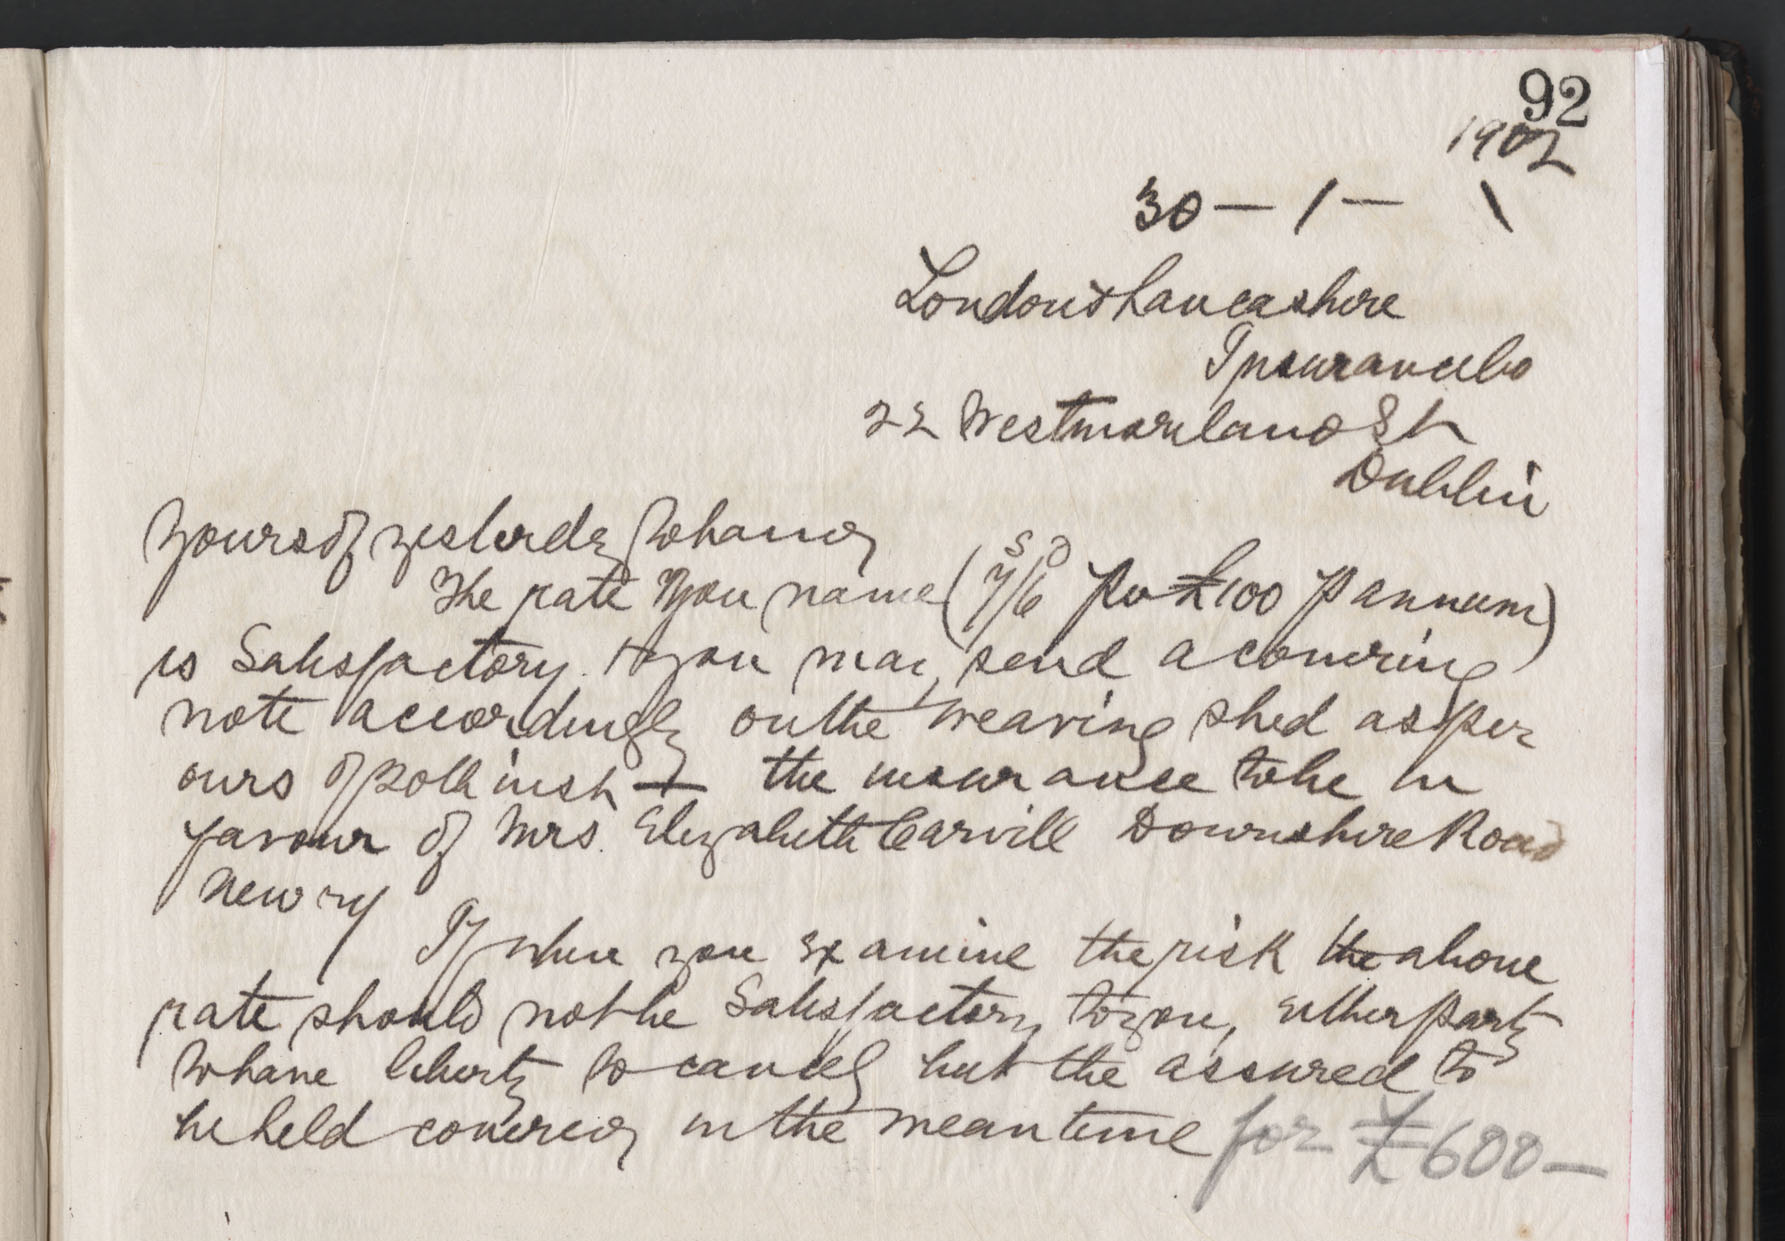 92
1902
30 - / - \
London & Lancashire
Insurance Co
22 Westmorland St
Dublin
Yours of yesterday to hand
The rate you name (7s/6d per £100 p annum)
is Satisfactory. & you may send a covering
note accordingly on the weaving shed as per
ours of 20th inst — the insurance to be in
favour of Mrs. Elizabeth Carvill Downshire Road
Newry
If when you examine the risk the above
rate should not be Satisfactory to you, either party
to have liberty to cancel but the assured to
be held covered in the meantime for £600 —